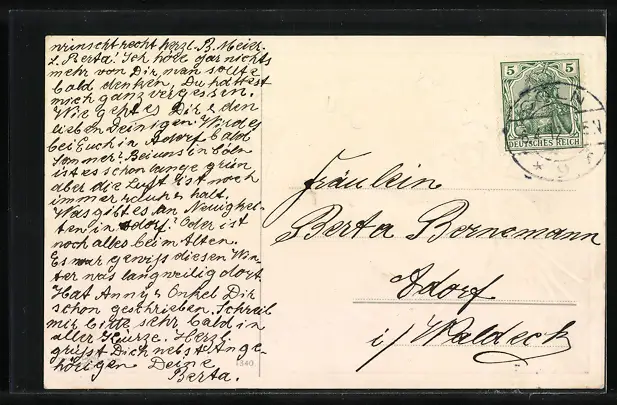 wünscht recht herzl. B. Meier.
L. Berta! Ich höre gar nichts
mehr von Dir, man sollte
bald denken, Du hättest
mich ganz vergessen.
Wie geht es Dir & den
lieben Deinigen? Wird es
bei Euch in Adorf bald
Sommer? Bei uns in Cöln
ist es schon lange grün
aber die Luft ist noch
immer kalt.
Was gibt es an Neuigkei-
ten in Adorf? Oder ist
noch alles beim Alten.
Es war gewiss diesen Win-
ter was langweilig dort
Hat Anny & Onkel Dir
schon geschrieben. Schreib
mir bitte sehr bald in
aller Kürze. Herzl.
grüsst Dich nebst Ange-
hörigen Deine
Berta.
1340
5 5
DEUTSCHES REICH
CÖLN
Fräulein
Berta Bornemann
Adorf
i/ Waldeck